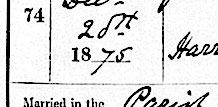 74
28th
1875 Harr
Married in the Parish